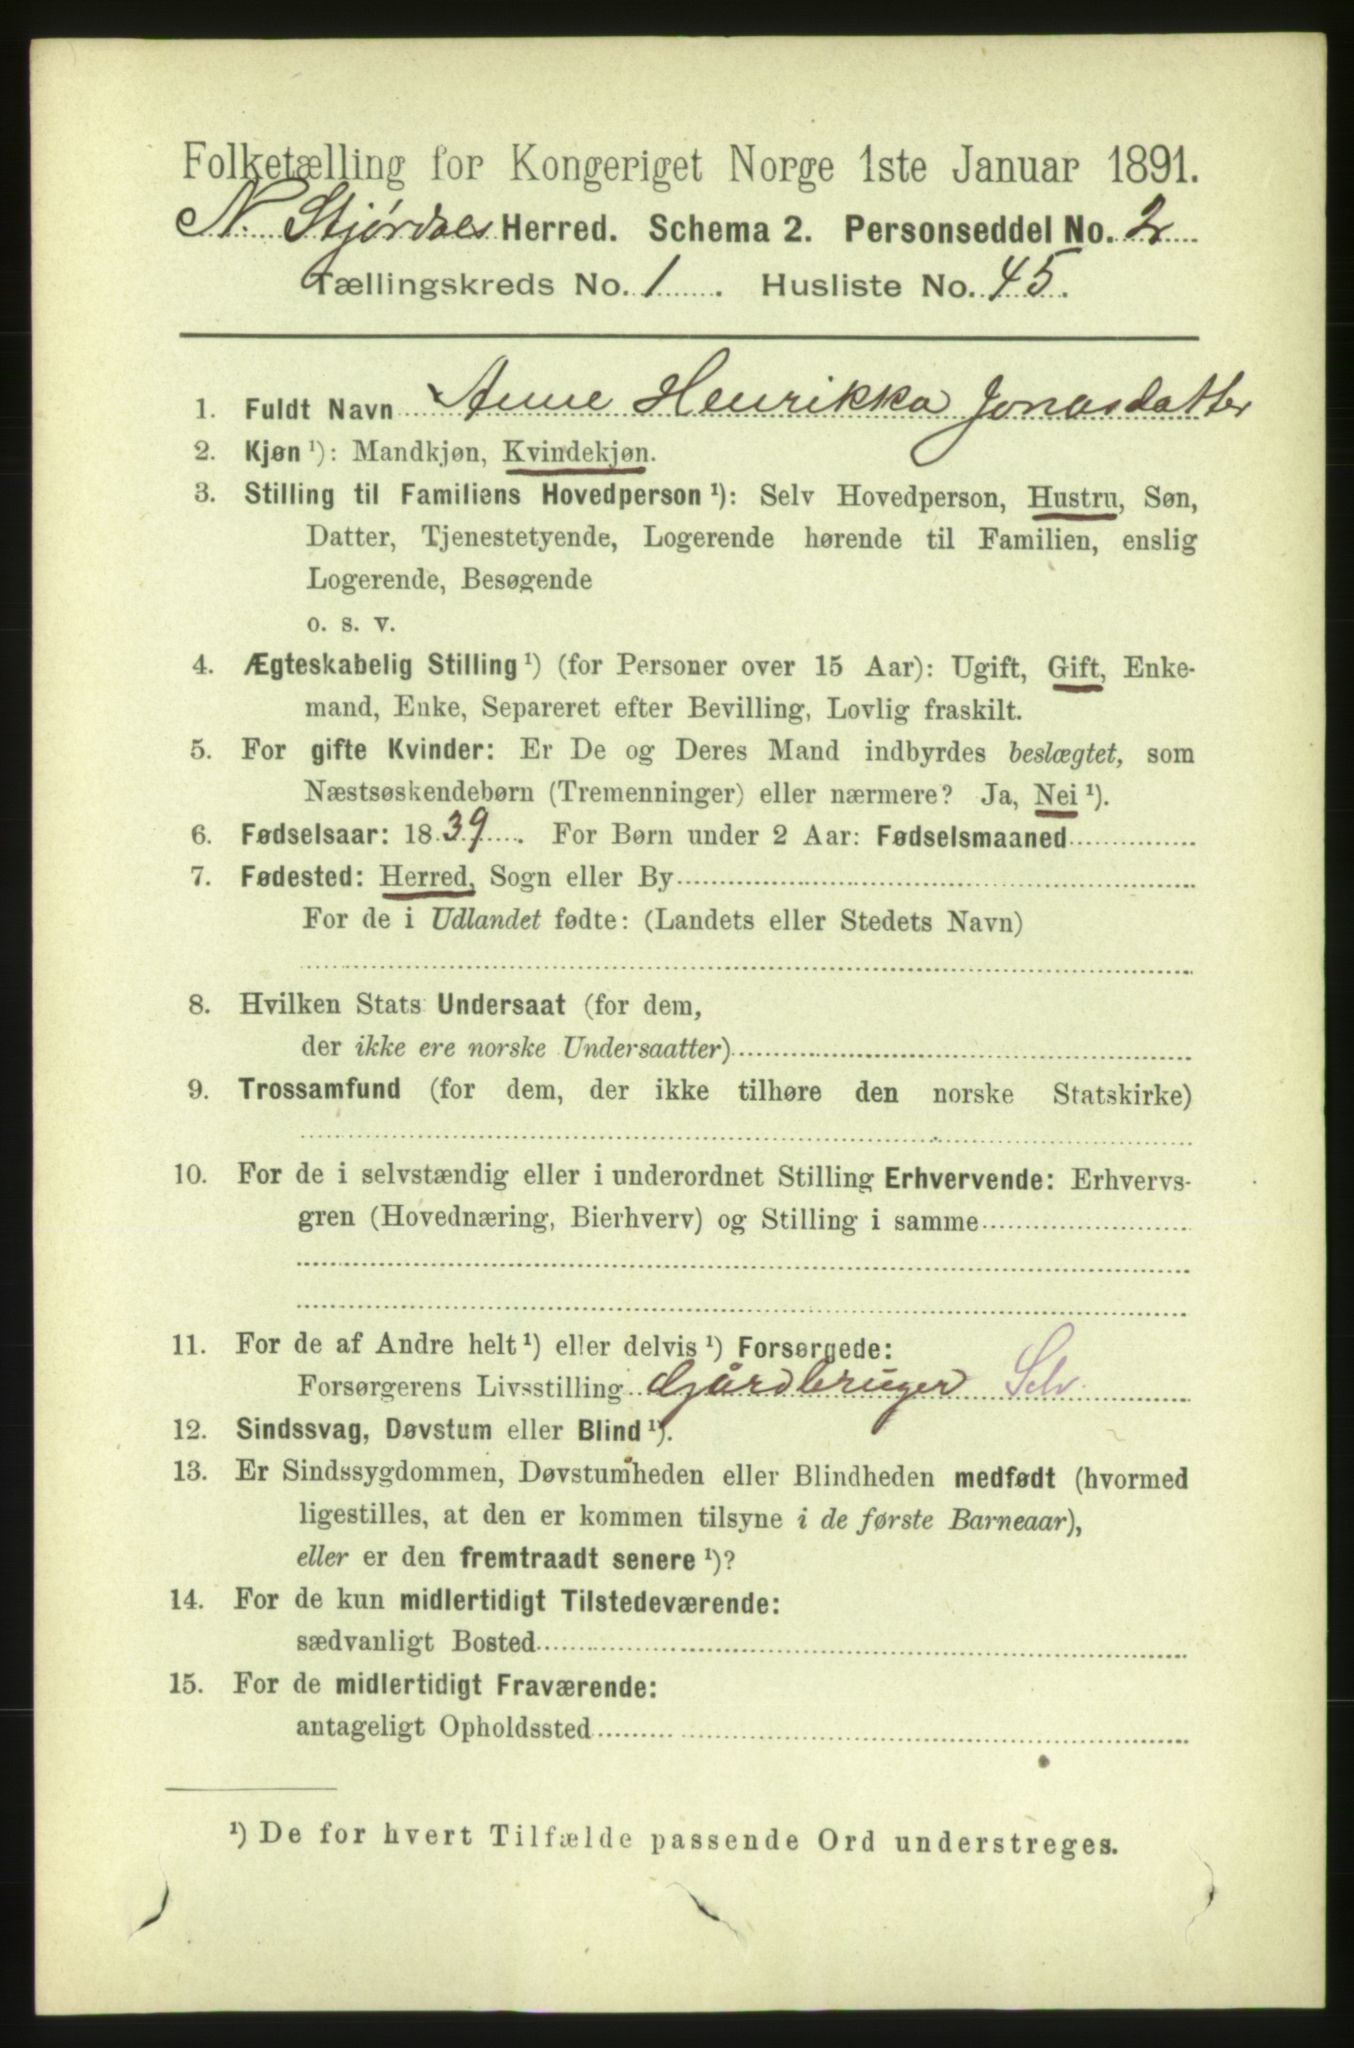 Folketælling for Kongeriget Norge 1ste Januar 1891.
N. Stjørdals Herred. Schema 2. Personseddel No. 2
Tællingskreds No. 1. Husliste No. 45.
1. Fuldt Navn Anne Henrikka Jonasdatter
2. Kjøn ¹): Mandkjøn, Kvindekjøn.
3. Stilling til Familiens Hovedperson ¹): Selv Hovedperson, Hustru, Søn,
Datter, Tjenestetyende, Logerende hørende til Familien, enslig
Logerende, Besøgende
o. s. v.
4. Ægteskabelig Stilling ¹) (for Personer over 15 Aar): Ugift, Gift, Enke-
mand, Enke, Separeret efter Bevilling, Lovlig fraskilt.
5. For gifte Kvinder: Er De og Deres Mand indbyrdes beslægtet, som
Næstsøskendebørn (Tremenninger) eller nærmere? Ja, Nei ¹).
6. Fødselsaar: 1839. For Børn under 2 Aar: Fødselsmaaned
7. Fødested: Herred, Sogn eller By
For de i Udlandet fødte: (Landets eller Stedets Navn)
8. Hvilken Stats Undersaat (for dem,
der ikke ere norske Undersaatter)
9. Trossamfund (for dem, der ikke tilhøre den norske Statskirke)
10. For de i selvstændig eller i underordnet Stilling Erhvervende: Erhvervs-
gren (Hovednæring, Bierhverv) og Stilling i samme
11. For de af Andre helt ¹) eller delvis ¹) Forsørgede:
Forsørgerens Livsstilling Gårdbruger Selv
12. Sindssvag, Døvstum eller Blind ¹).
13. Er Sindssygdommen, Døvstumheden eller Blindheden medfødt (hvormed
ligestilles, at den er kommen tilsyne i de første Barneaar),
eller er den fremtraadt senere ¹)?
14. For de kun midlertidigt Tilstedeværende:
sædvanligt Bosted
15. For de midlertidigt Fraværende:
antageligt Opholdssted
¹) De for hvert Tilfælde passende Ord understreges.